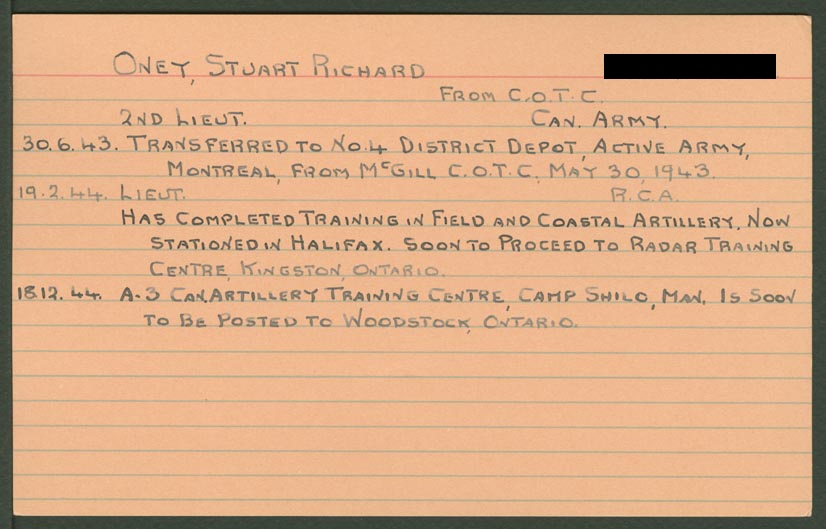 ONEY, STUART RICHARD
FROM C.O.T.C.
2ND LIEUT. CAN. ARMY.
30.6.43. TRANSFERRED TO NO.4 DISTRICT DEPOT, ACTIVE ARMY,
MONTREAL, FROM McGILL C.O.T.C. MAY 30, 1943.
19.2.44. LIEUT. R.C.A.
HAS COMPLETED TRAINING IN FIELD AND COASTAL ARTILLERY. NOW
STATIONED IN HALIFAX. SOON TO PROCEED TO RADAR TRAINING
CENTRE, KINGSTON, ONTARIO.
18.12.44. A-3 CAN. ARTILLERY TRAINING CENTRE, CAMP SHILO, MAN. IS SOON
TO BE POSTED TO WOODSTOCK, ONTARIO.